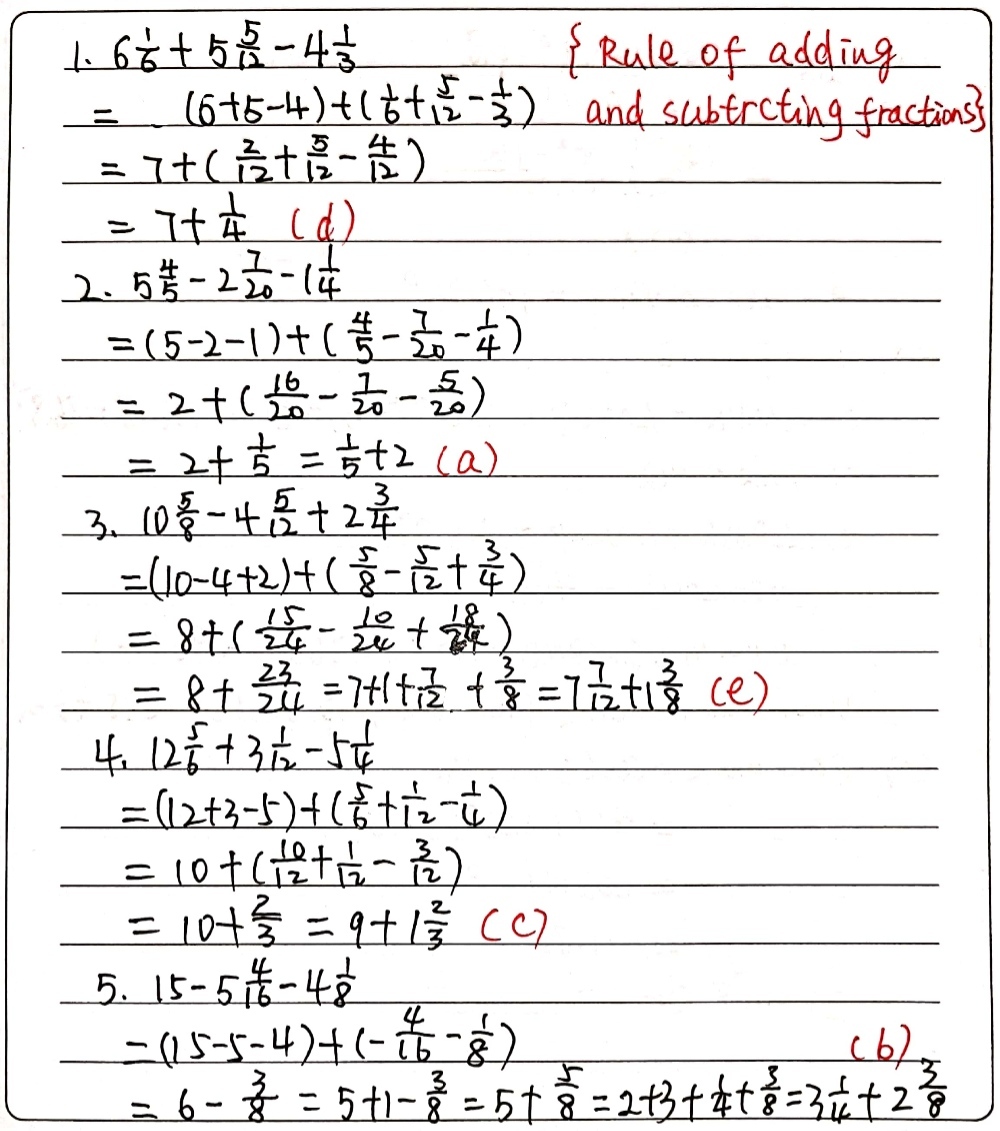 1. 6 1/6 + 5 5/12 - 4 1/3 { Rule of adding
= (6+5-4)+(1/6+5/12-1/3) and subtrcting fractions}
= 7+(2/12+5/12-4/12)
= 7+1/4 (d)
2. 5 4/5 - 2 7/20 - 1 1/4
=(5-2-1)+(4/5-7/20-1/4)
= 2+(16/20-7/20-5/20)
= 2+1/5 = 1/5+2 (a)
3. 10 5/8 - 4 5/12 + 2 3/4
=(10-4+2)+(5/8-5/12+3/4)
= 8+(15/24-10/24+18/24)
= 8+23/24 = 7+1+7/12+3/8 = 7 7/12+1 3/8 (e)
4. 12 5/6 + 3 1/12 - 5 1/4
=(12+3-5)+(5/6+1/12-1/4)
= 10+(10/12+1/12-3/12)
= 10+2/3 = 9+1 2/3 (c)
5. 15-5 4/16-4 1/8
=(15-5-4)+(-4/16-1/8) (b)
= 6-3/8 = 5+1-3/8 = 5+5/8 = 2+3+1/4+3/8 = 3 1/4+2 3/8